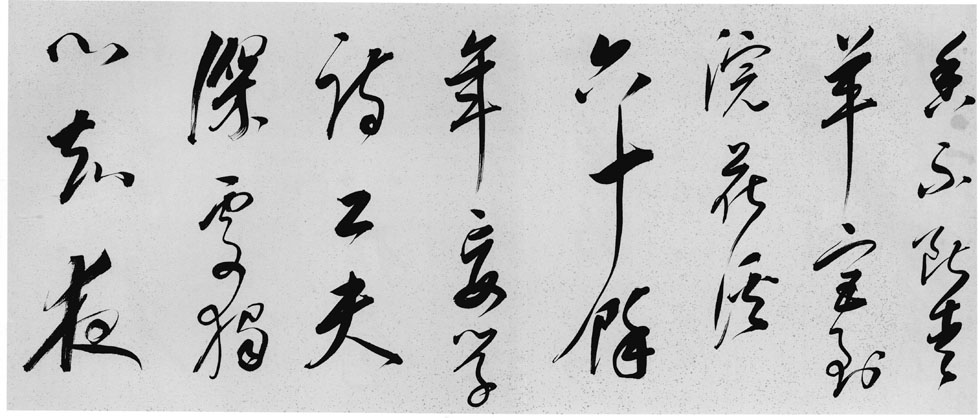 香不斷青
羊宮到
浣花溪
六十餘
年妄學
詩工夫
深處獨
心知夜